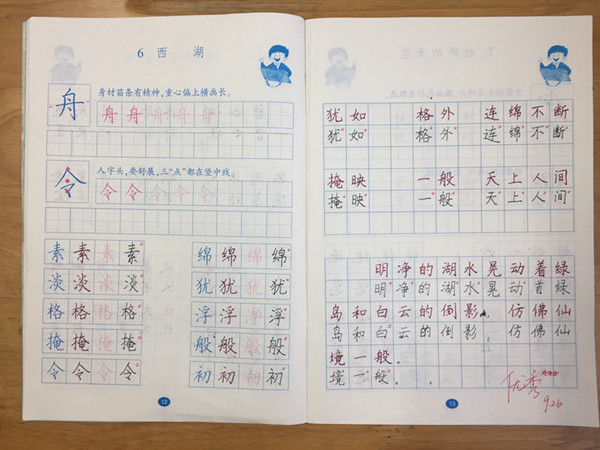 6 西 湖
身材苗条有精神，重心偏上横画长。
舟 舟 舟 舟 舟 舟
人字头，要舒展，三“点”都在竖中线。
令 令 令 令 令 令
素 素 素 素 绵 绵 绵 绵
淡 淡 淡 淡 犹 犹 犹 犹
格 格 格 格 浮 浮 浮 浮
掩 掩 掩 掩 般 般 般 般
令 令 令 令 初 初 初 初
12
犹如 格外 连绵不断
犹如 格外 连绵不断
掩映 一般 天上人间
掩映 一般 天上人间
明净的湖水晃动着绿
明净的湖水晃动着绿
岛和白云的倒影，仿佛仙
岛和白云的倒影，仿佛仙
境一般。
境一般。
优秀
9.26
13